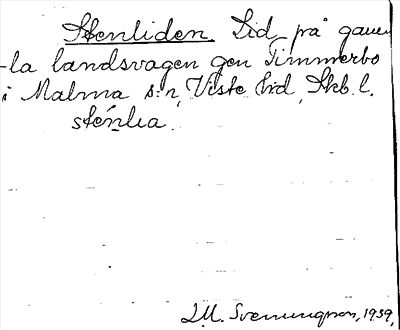 Stenliden. Lid på gam-
-la landsvagen gen Timmerbo
i Malma s:n, Viste hd, Skb. l.
sténlia.
I.M. Svenungson, 1939,